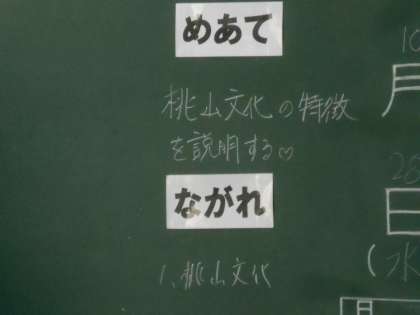 めあて
桃山文化の特徴
を説明する♡
ながれ
1、桃山文化
10
月
28
日
(水